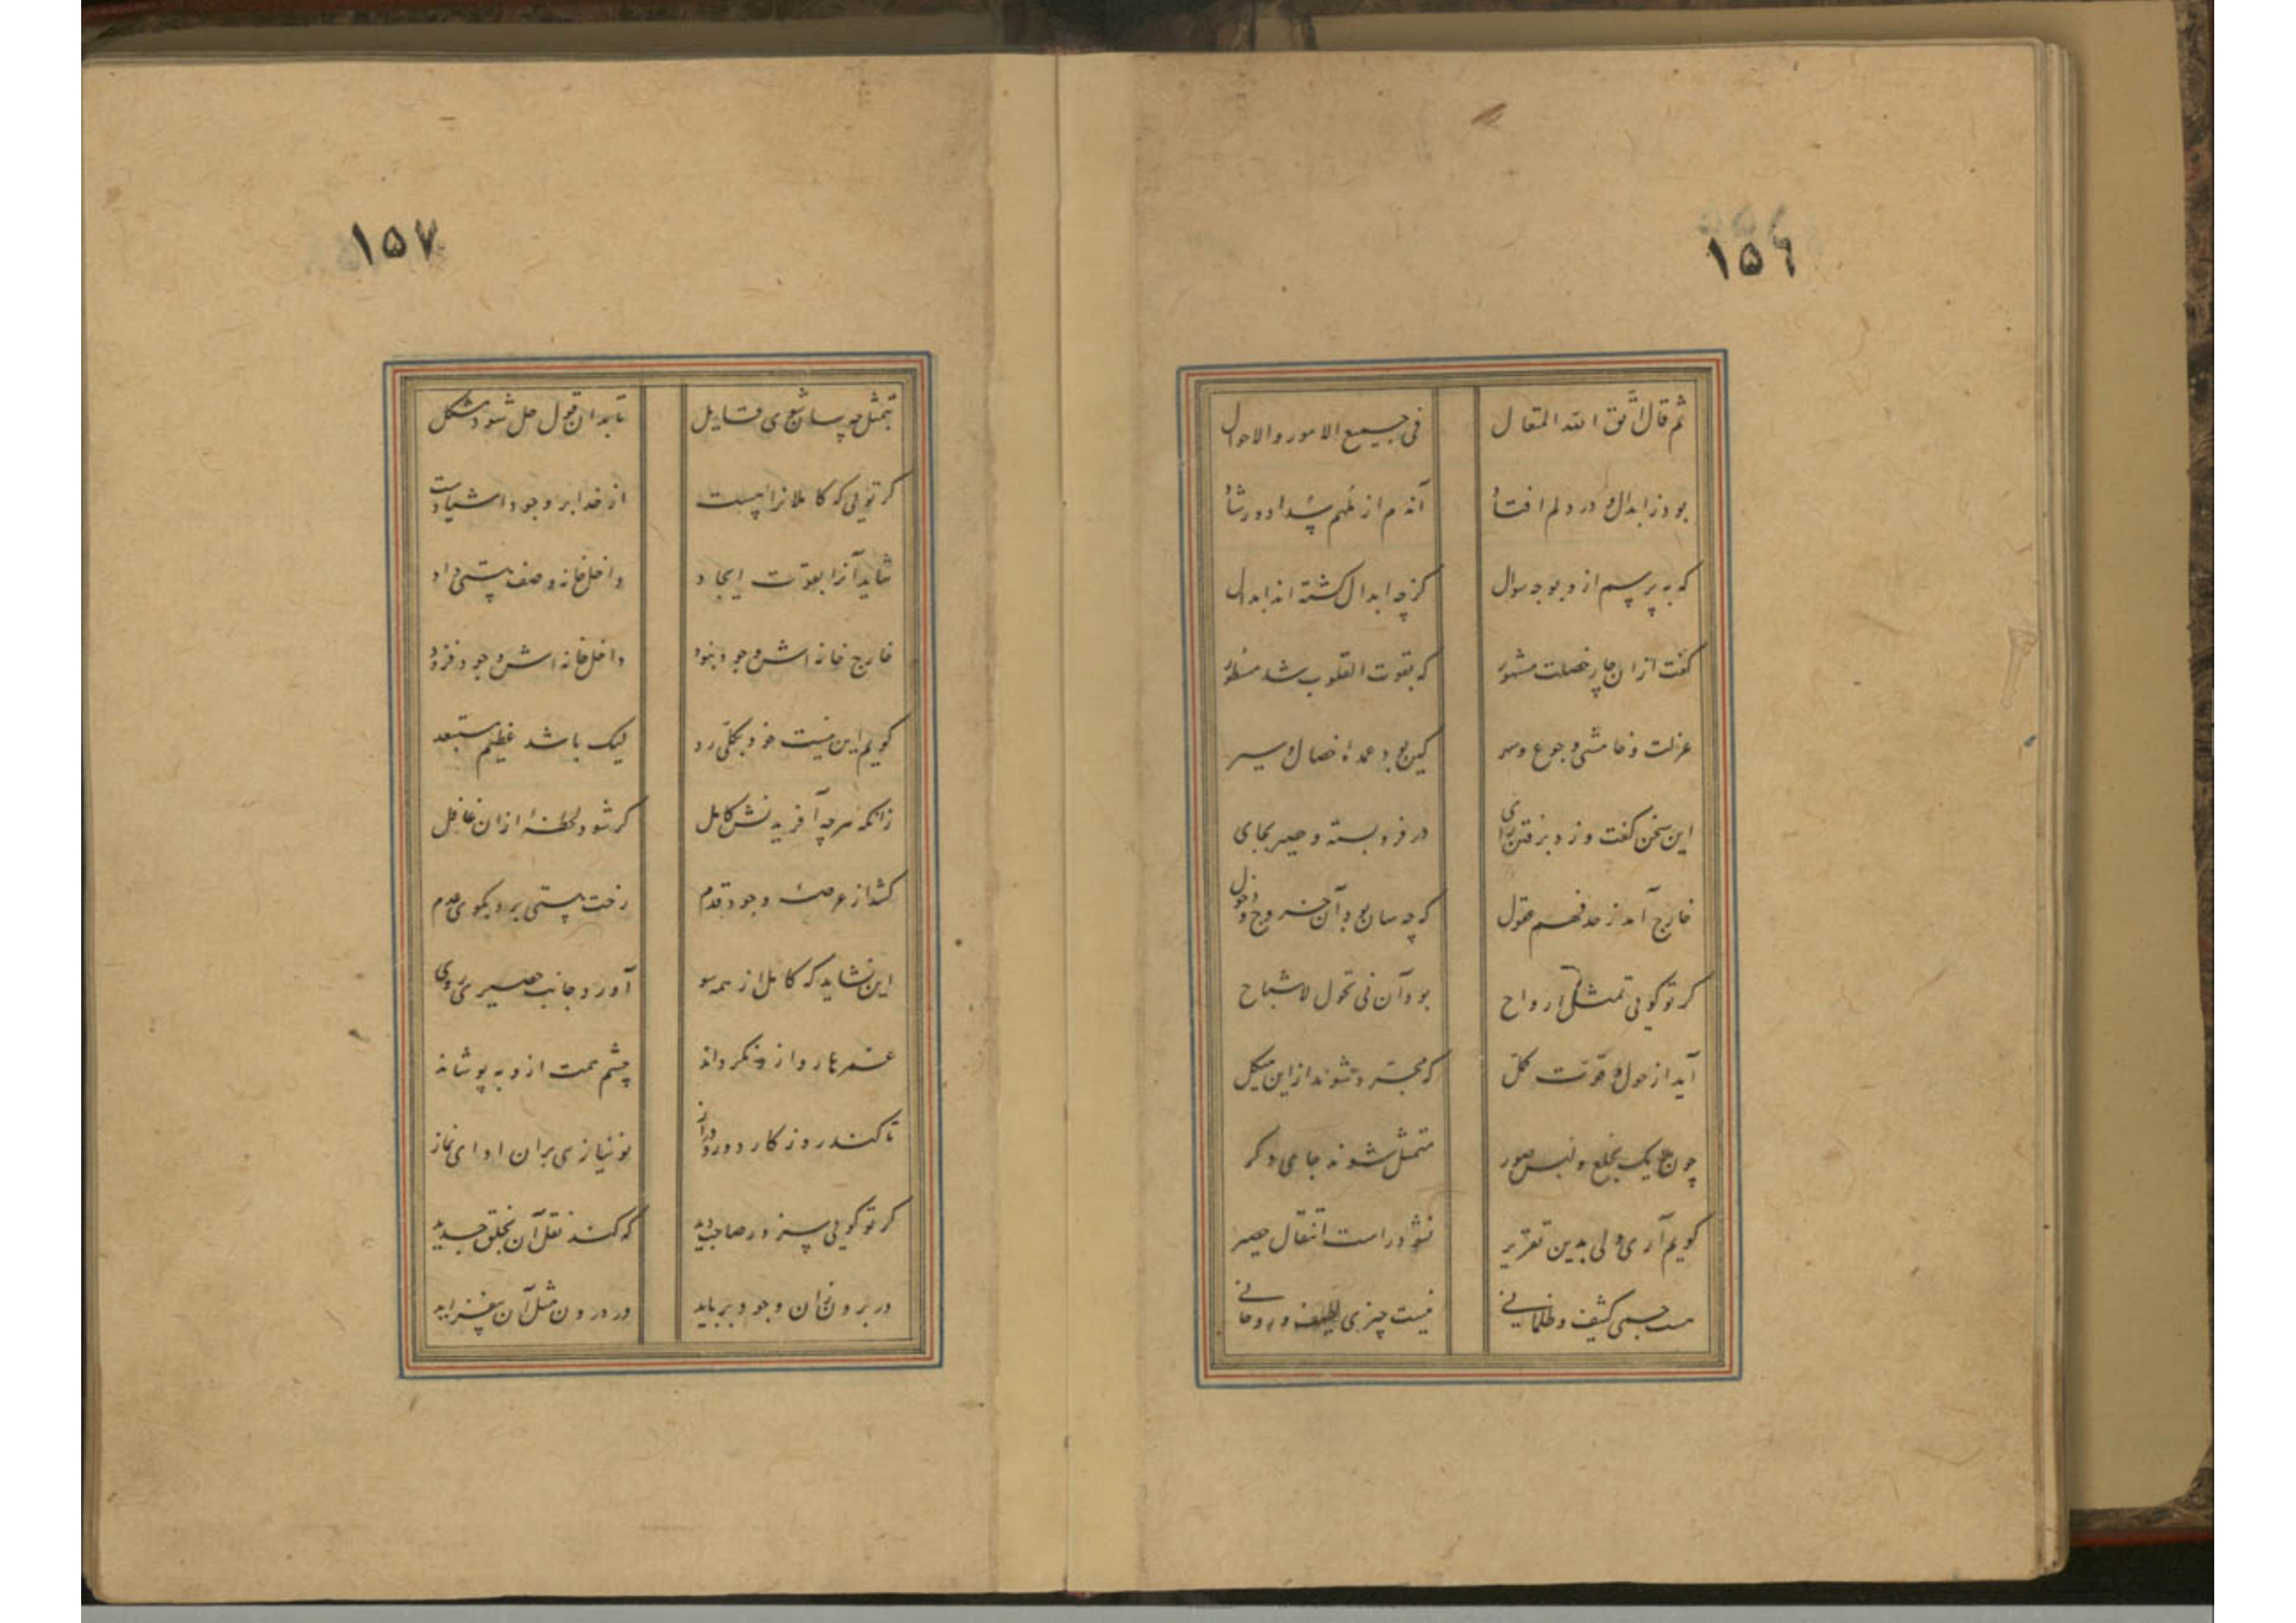 ١٥٦
ثم قال اثق الله المتعال
فی جمیع الامور والاحوال
بود ز ابدال در دلم افتاد
آندم از ملهم
که به پرسم ازو بوجه سوال
کز چه ابدال کشته اند ابدال
کفت ازان چار خصلت مشهور
که بقوت القلوب شد مسطور
عزلت و خامشی و جوع و سهر
کین بود عمده خصال و سیر
این سخن کفت و زد برفتن رای
در فرو بسته و حصیر بجای
خارج آمد ز حد فهم عقول
که چه سان بود آن خروج و دخول
کر تو کویی تمثل ارواح
بود آن نی تحول اشباح
آید از حول و قوت کمل
که مجرد شوند ازین هیکل
چون بیک بخلع و لبس صور
متمثل شوند جای دکر
کویم آری ولی بدین تقریر
نشود راست انتقال حصیر
هست جسمی کثیف و ظلمانی
نیست چیزی لطیف و روحانی
١٥٧
بتمثل چه سان شوی قایل
تا بدان قول حل شود مشکل
کر تو کویی که کاملانرا هست
از خدا بر وجود اشیا دست
شاید آنرا بقوت ایجاد
داخل خانه وصف هستی داد
خارج خانه اش وجود نبود
داخل خانه اش وجود فزود
کویم این نیست خود بکلی رد
لیک باشد عظیم مستبعد
زانکه هر چه آفریدنش کامل
کر شود لحظۀ ازان غافل
کشد از عرصۀ وجود قدم
رخت هستی برد بکوی عدم
این نشاید که کامل از همه سو
آورد جانب حصیری روی
عمرها رو ازو نکرداند
چشم همت ازو نه پوشاند
تا کند روزکار دور و دراز
نو نیازی بران ادای نماز
کر تو کویی سزد ز صاحب دید
که کند نقل آن بخلق جدید
در برون زان وجود برباید
در درون مثل آن بیفزاید